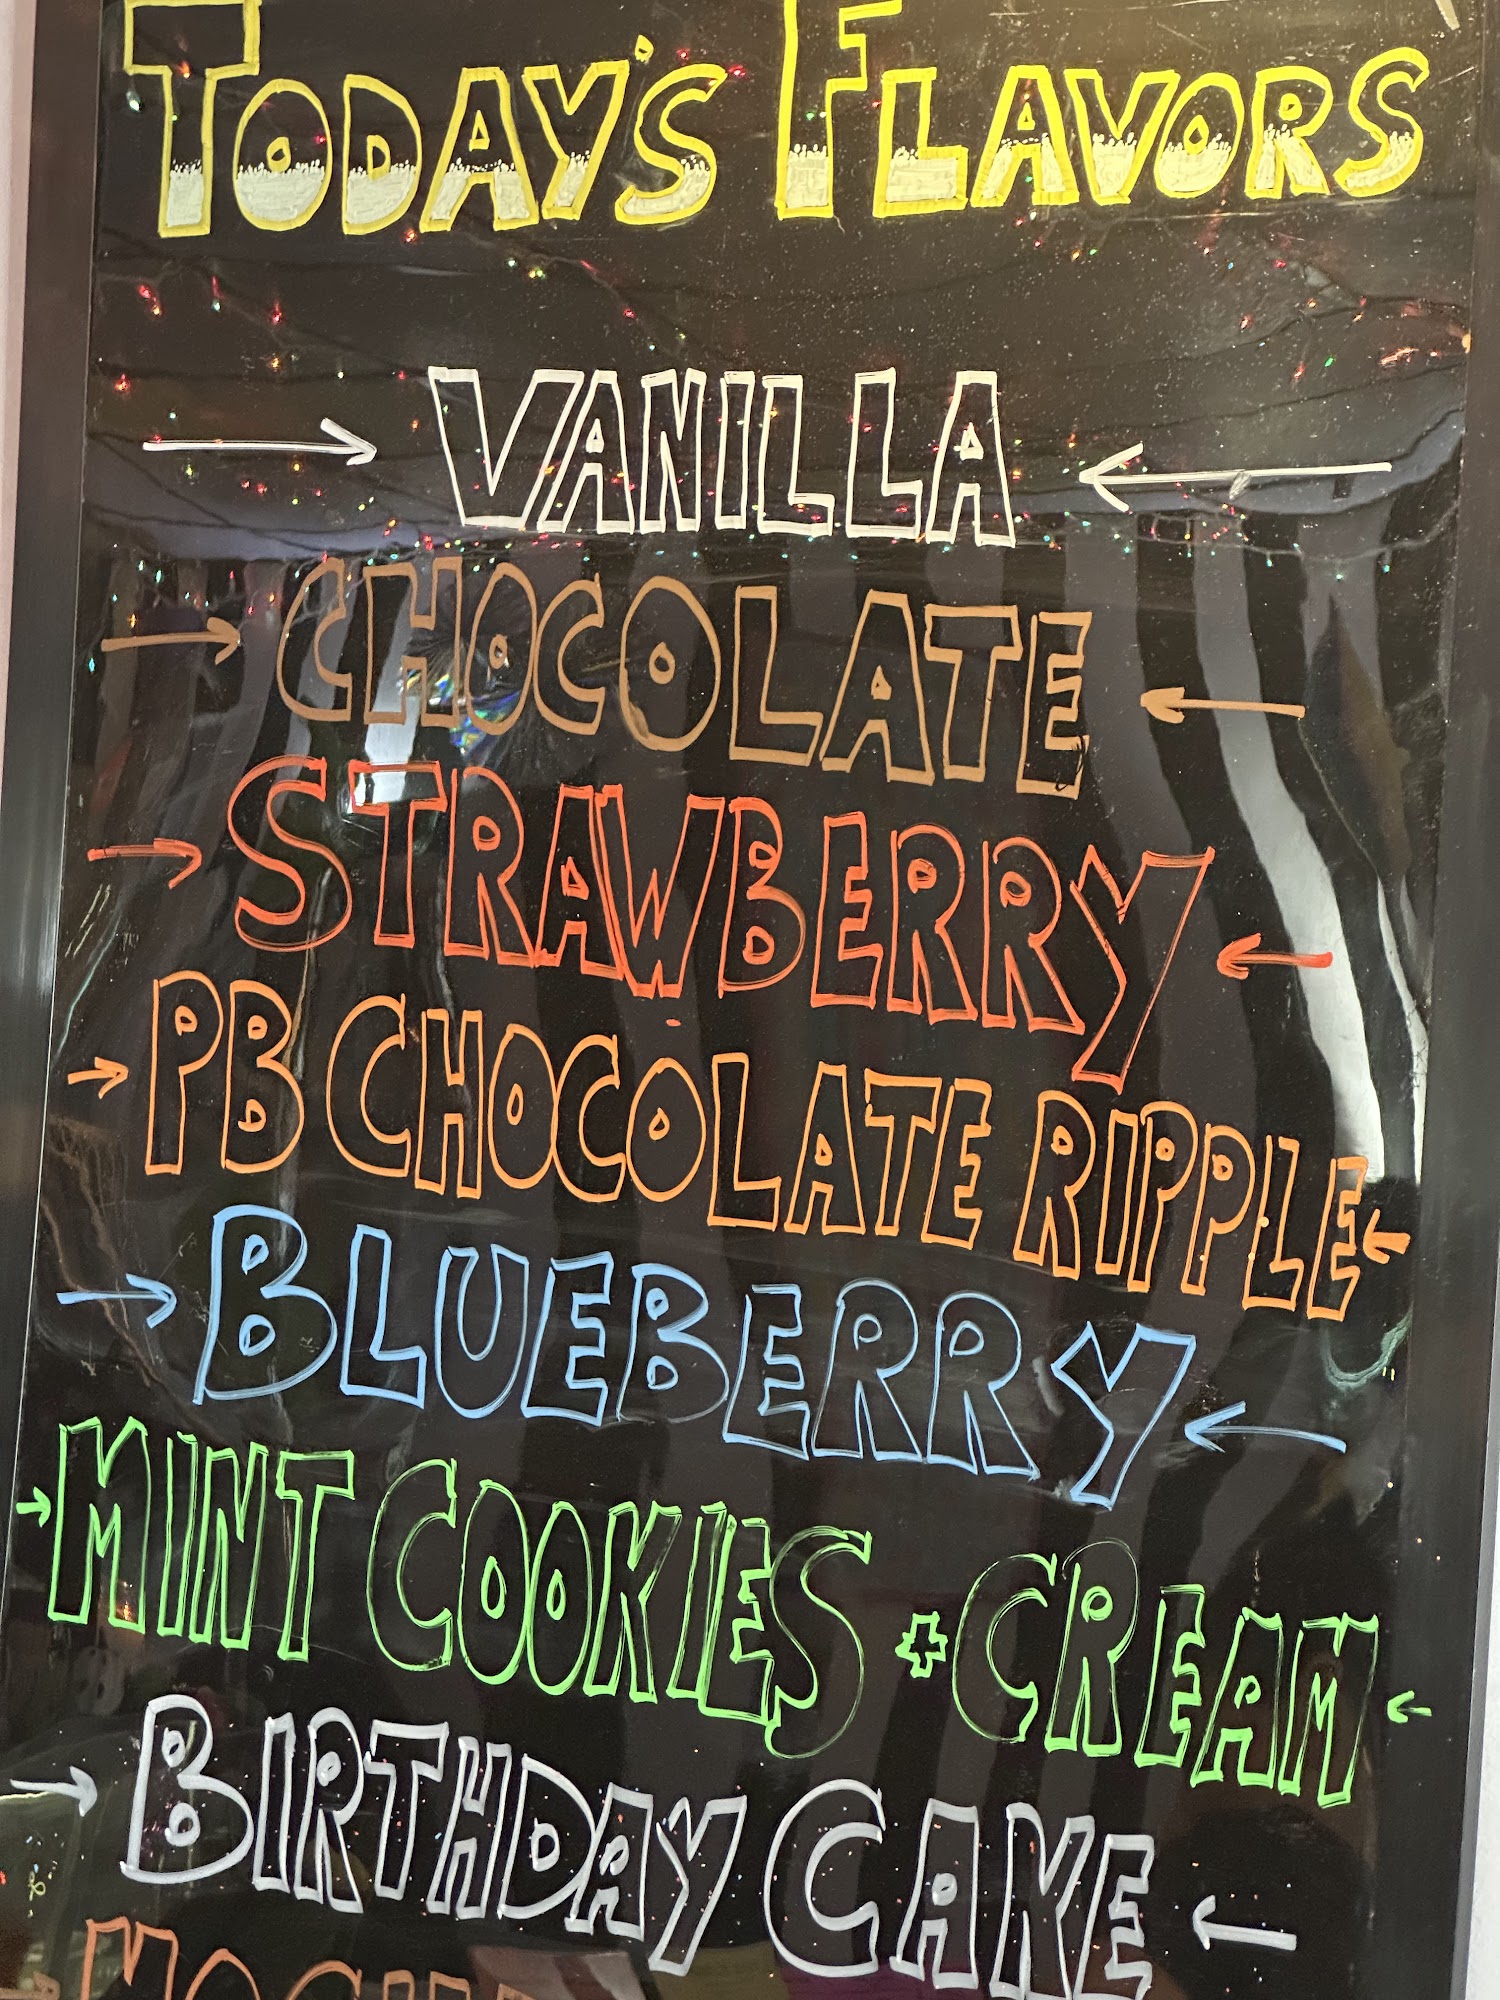 TODAY'S FLAVORS
VANILLA
CHOCOLATE
STRAWBERRY
PB CHOCOLATE RIPPLE
BLUEBERRY
MINT COOKIES + CREAM
BIRTHDAY CAKE